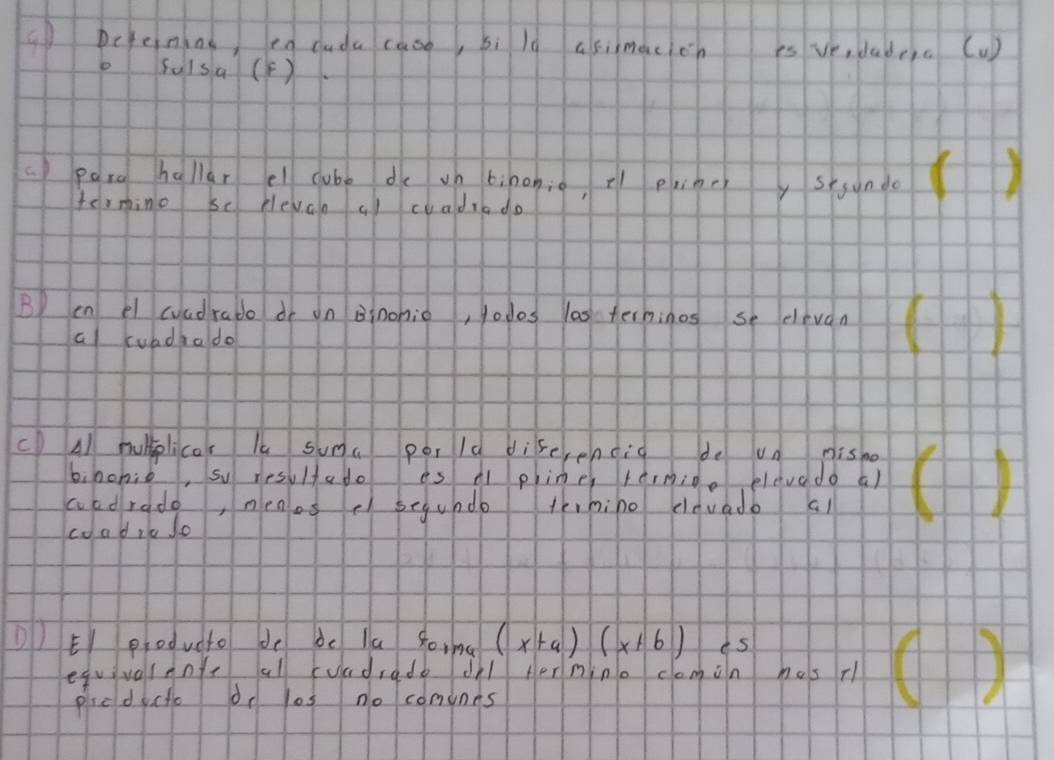 9) Determina, en cada caso, si la afirmación es verdadera (v)
o falsa (F).
a) para hallar el cubo de un binomio, el primer y segundo ( )
termino se elevan al cuadrado
B) en el cuadrado de un Binomio, todos los terminos se elevan ( )
al cuadrado
c) Al multiplicar la suma por la diferencia de un mismo
binomio, su resultado es el primer termino elevado al ( )
cuadrado, menos el segundo termino elevado al
cuadrado
D) El producto de de la forma (x+a) (x+b) es
equivalente al cuadrado del termino común mas el ( )
producto de los no comunes